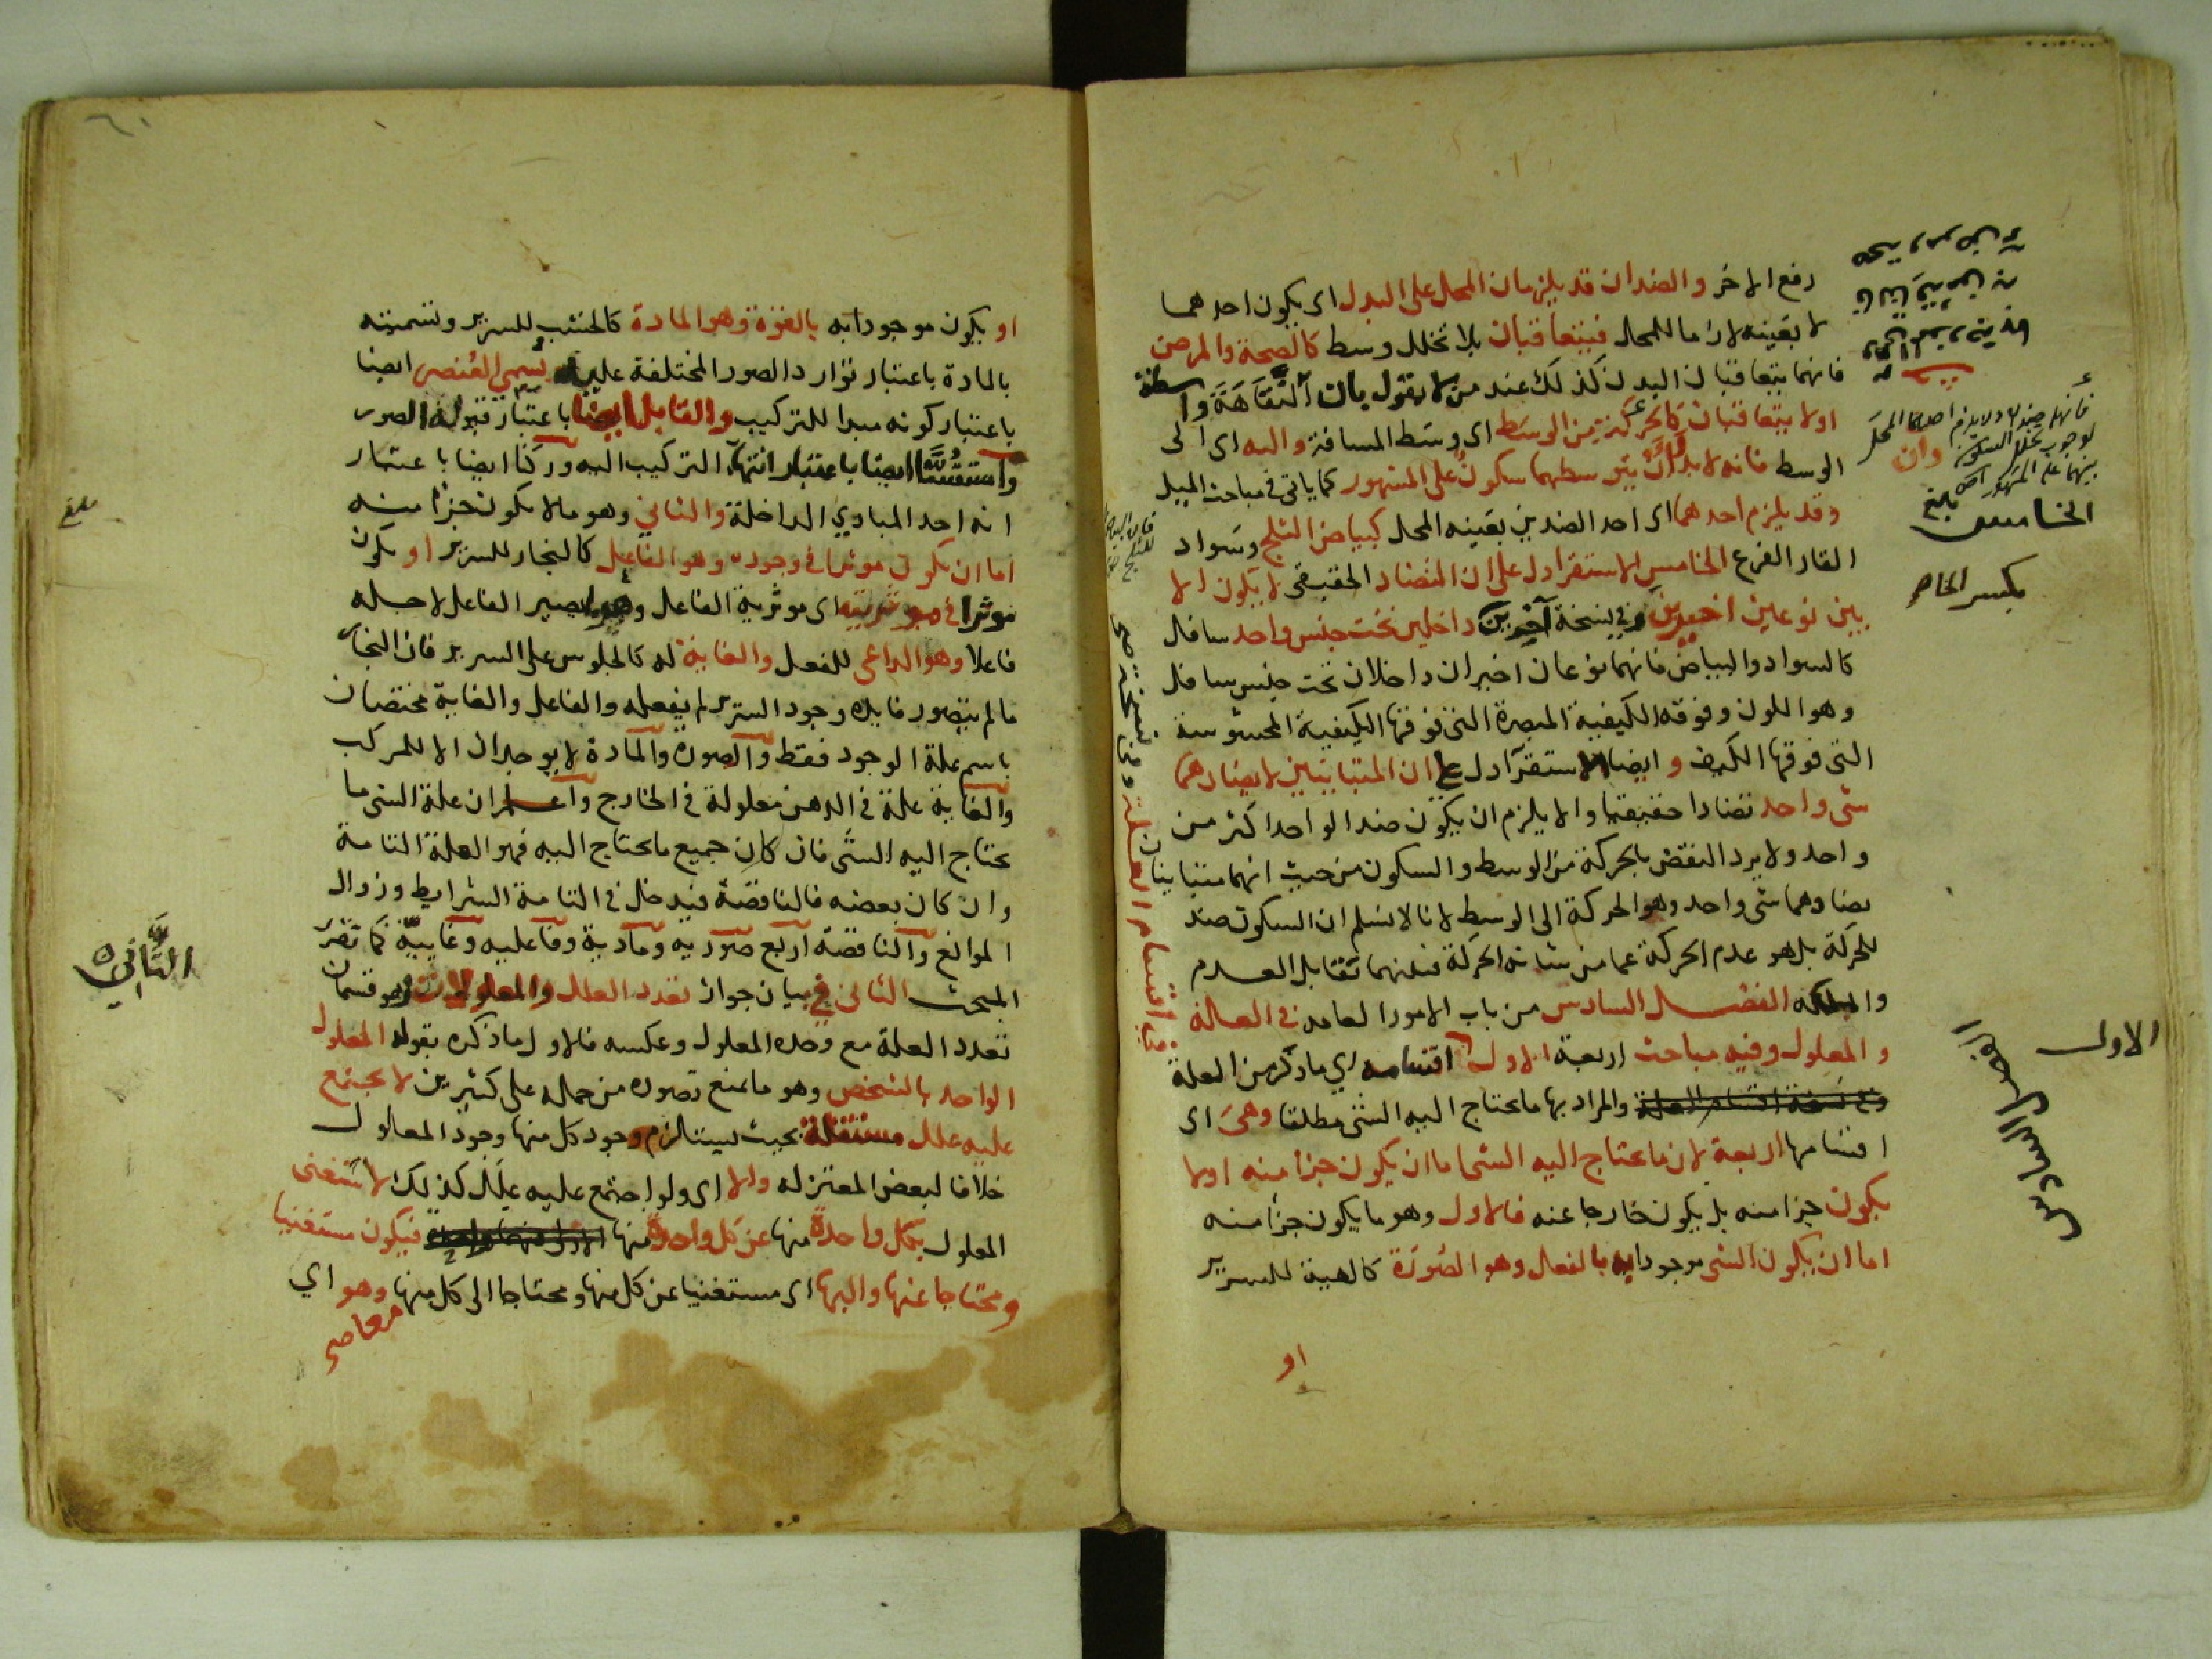 رفع الاخر والضدان قد يلزمان المحل على البدل اى يكون احدهما
لا بعينه لازما للمحل فيتعاقبان بلا تخلل وسط كالصحة والمرض
فانهما يتعاقبان البدن كذلك عند من لا يقول بان النقاهة واسطة
اولا يتعاقبان كالحركة من الوسط اى وسط المسافة واليه اى الى
الوسط فانه لا بد ان يتوسطهما سكون على المشهور كما ياتى فى مباحث الميل
وقد يلزم احدهما اى احد الضدين بعينه المحل كبياض الثلج وسواد
القار الفرع الخامس الاستقرا دل على ان التضاد الحقيقى لا يكون الا
بين نوعين اخيرين وفى نسخة آخرين داخلين تحت جنس واحد سافل
كالسواد والبياض فانهما نوعان اخيران داخلان تحت جنس سافل
وهو اللون وفوقه الكيفية المبصرة التى فوقها الكيفية المحسوسة
التى فوقها الكيف وايضا الاستقرآ دل على ان المتباينين لا يضادهما
شى واحد تضادا حقيقيا والا يلزم ان يكون ضد الواحد اكثر من
واحد ولا يرد النقض بالحركة من الوسط والسكون من حيث انهما متباينان
يضادهما شى واحد وهو الحركة الى الوسط لانا لا نسلم ان السكون ضد
للحركة بل هو عدم الحركة عما من شانه الحركة فبينهما تقابل العدم
والملكة الفصل السادس من باب الامور العامه فى العلة
والمعلول وفيه مباحث اربعة الاول اقسامه اي ما ذكر من العلة
وفى نسخة اقسام العلة والمراد بها ما يحتاج اليه الشى مطلقا وهى اى
اقسامها اربعة لان ما يحتاج اليه الشى اما ان يكون جزا منه اولا
يكون جزا منه بل يكون خارجا عنه فالاول وهو ما يكون جزا منه
اما ان يكون الشى موجودا به بالفعل وهو الصورة كالهيئة للسرير
او
فانهما ضدان ولا يلزم احدهما المحل
لوجوب تخلل السكون
بينهما على المشهور
وان
بلغ
الخامس
بكسر الخا
الاول
الفصل السادس
وفى نسخة
اقسام العلة
او يكون موجودا به بالقوة وهو المادة كالخشب للسرير وتسميته
بالمادة باعتبار توارد الصور المختلفة عليه ويسمى العنصر ايضا
باعتبار كونه مبدا للتركيب والقابل ايضا باعتبار قبوله الصور
واستقسا ايضا باعتبار انتهآ التركيب اليه وركنا ايضا باعتبار
انه احد المبادي الداخلة والثاني وهو ما لا يكون جزا منه
اما ان يكون موثرا فى وجوده وهو الفاعل كالنجار للسرير او يكون
موثرا فى موثريته اى موثرية الفاعل يصير الفاعل لاجله
فاعلا وهو الداعى للفعل والغاية له كالجلوس على السرير فان النجار
ما لم يتصور فايدة وجود السرير لم يفعله والفاعل والغاية مختصان
باسم علة الوجود فقط والصورة والمادة لا يوجدان الا للمركب
والغاية علة فى الذهن معلولة فى الخارج واعلم ان علة الشى ما
يحتاج اليه الشى فان كان جميع ما يحتاج اليه فهو العلة التامة
وان كان بعضه فالناقصة فيدخل فى التامة الشرايط وزوال
الموانع والناقصة اربع صورية ومادية وفاعليه وغاييّة كما تقرر
المبحث الثانى فى بيان جواز تعدد العلل والمعلولات وهو قسمان
تعدد العلة مع وحدة المعلول وعكسه فالاول ما ذكره بقوله المعلول
الواحد بالشخص وهو ما يمنع تصوره من حمله على كثيرين لا يجتمع
عليه علل مستقلة بحيث يستلزم وجود كل منها وجود المعلول
خلافا لبعض المعتزله والا اى ولو اجتمع عليه علل كذلك لاستغنى
المعلول بكل واحدة منها عن كل واحدة منها فيكون مستغنيا
ومحتاجا عنها واليها اى مستغنيا عن كل منها ومحتاجا الى كل منها وهو اي
معا صح
بلغ
الثَّاني